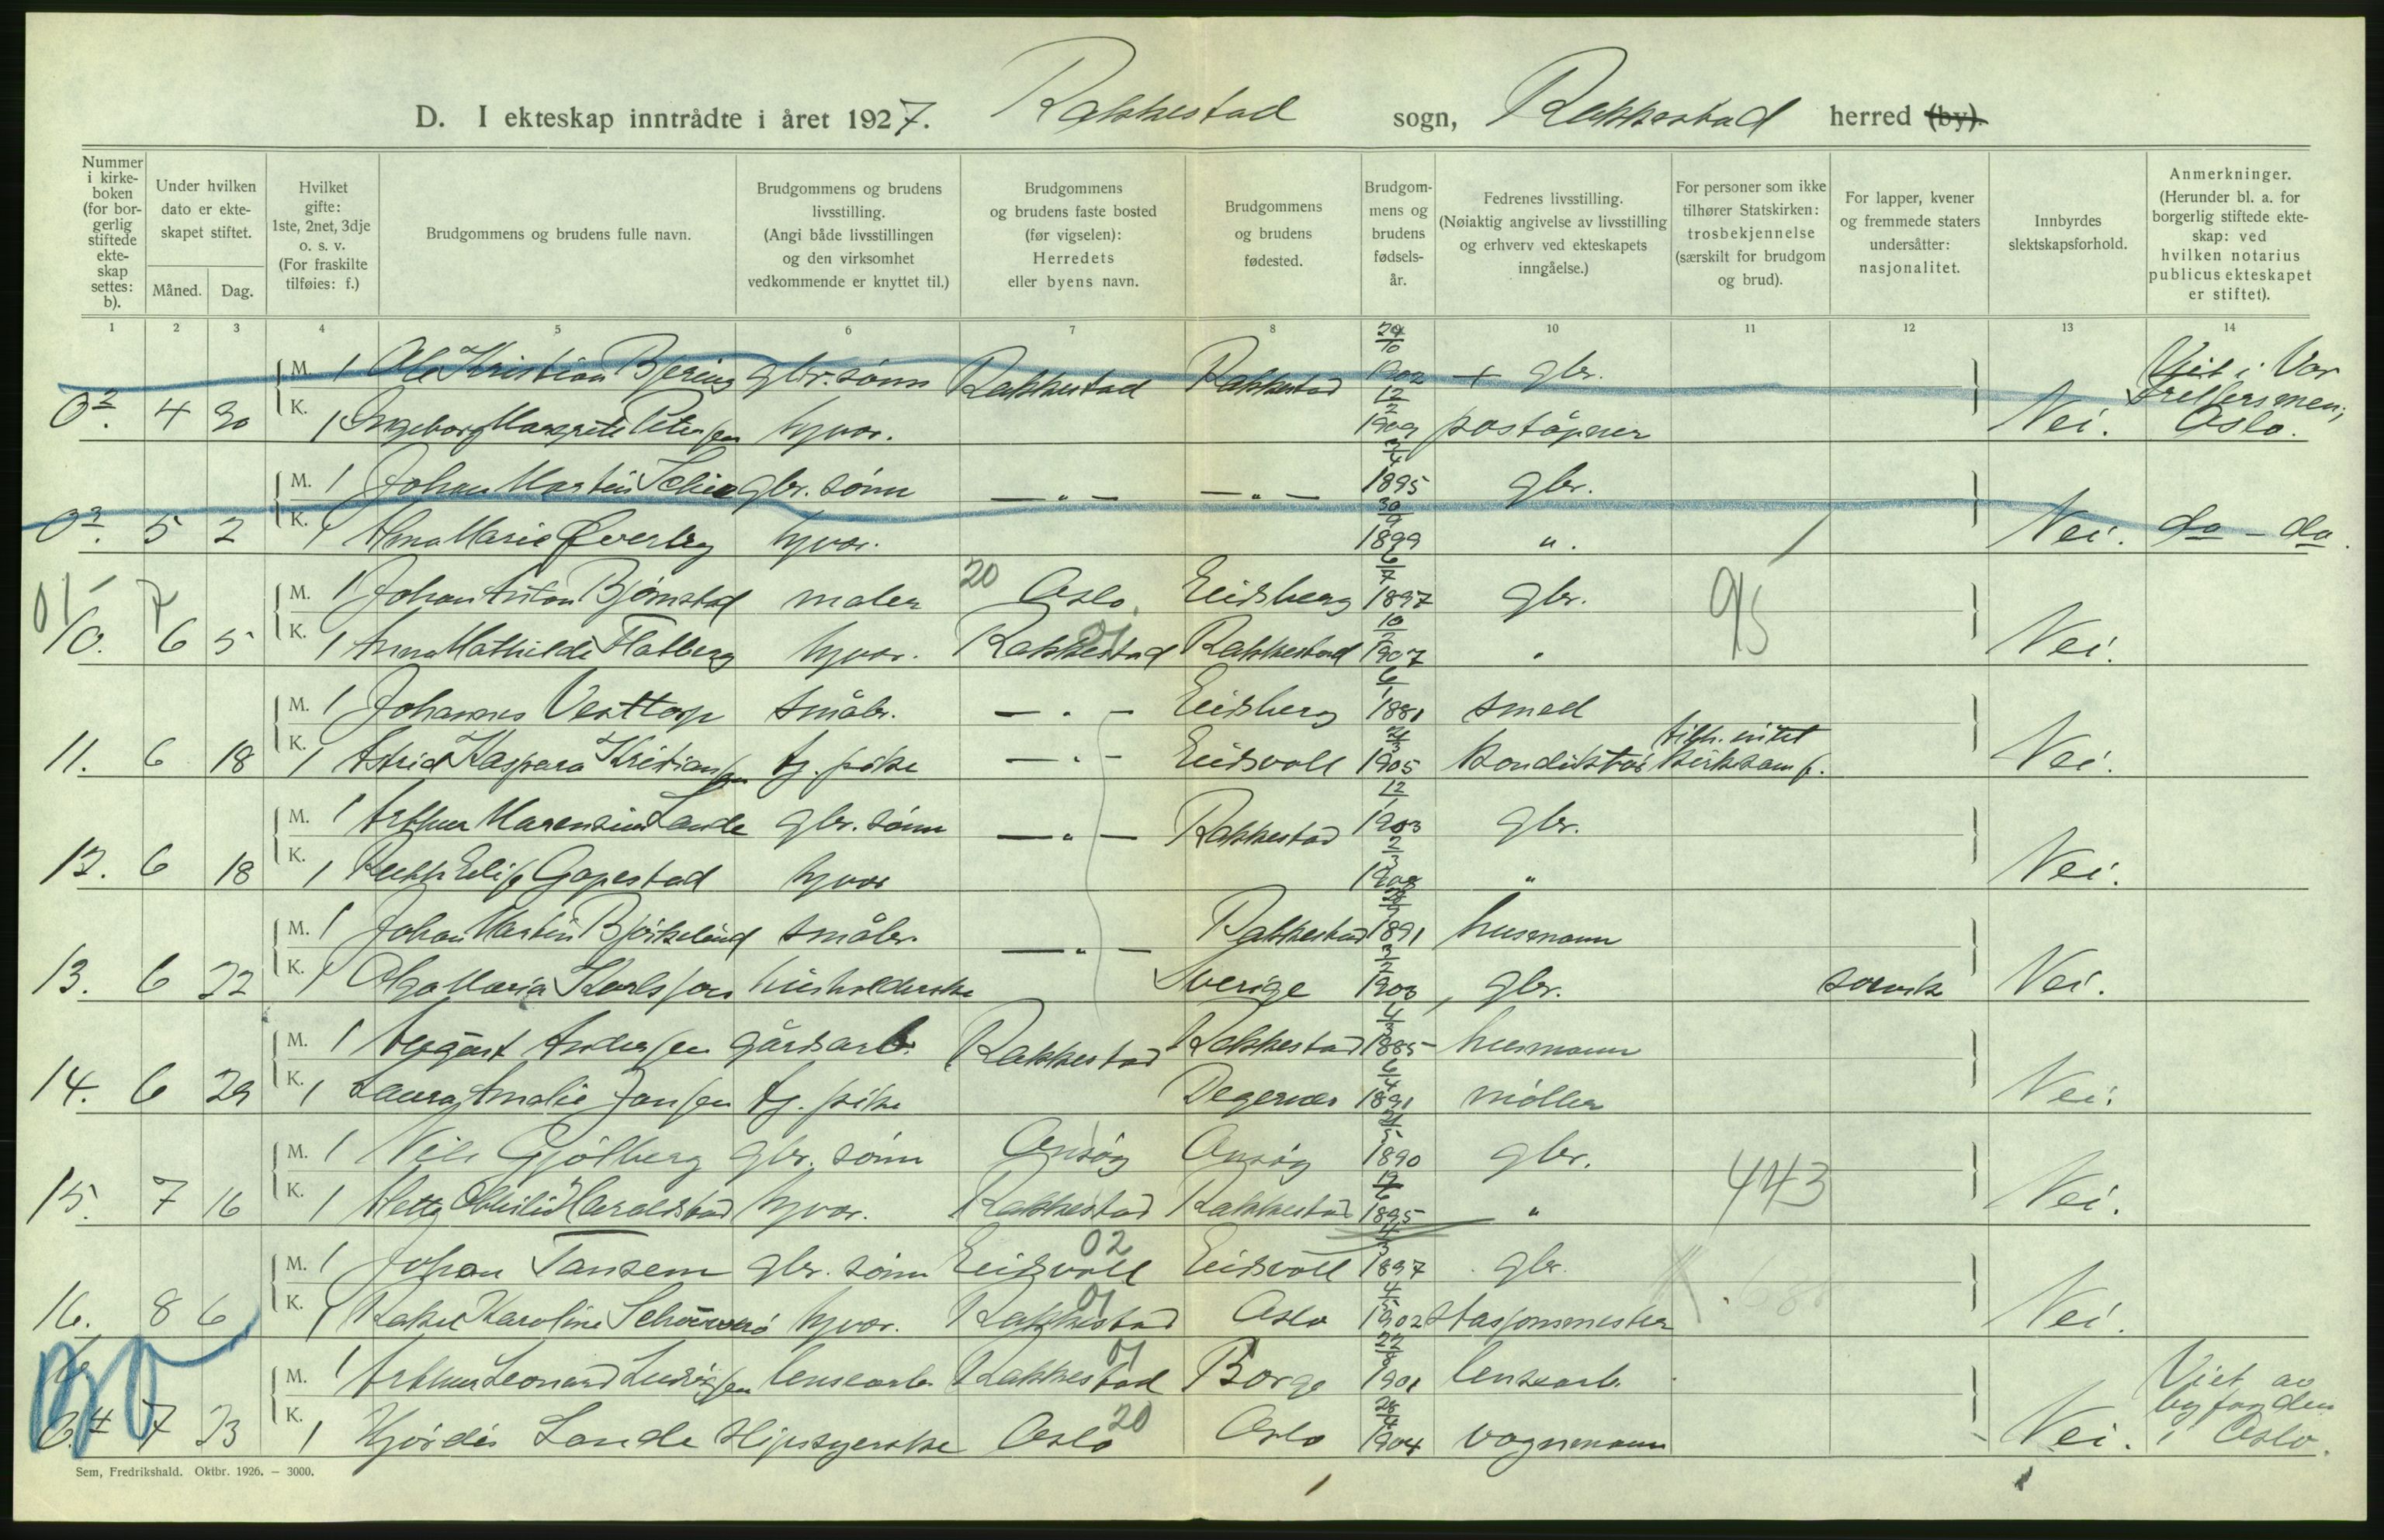 D. I ekteskap inntrådte i året 1927. Rakkestad sogn, Rakkestad herred (by).
Nummer i kirkeboken (for borgerlig stiftede ekteskap settes: b).
Under hvilken dato er ekteskapet stiftet.
Måned. Dag.
Hvilket gifte: 1ste, 2net, 3dje o. s. v. (For fraskilte tilføies: f.)
Brudgommens og brudens fulle navn.
Brudgommens og brudens livsstilling. (Angi både livsstillingen og den virksomhet vedkommende er knyttet til.)
Brudgommens og brudens faste bosted (før vigselen): Herredets eller byens navn.
Brudgommens og brudens fødested.
Brudgommens og brudens fødselsår.
Fedrenes livsstilling. (Nøiaktig angivelse av livsstilling og erhverv ved ekteskapets inngåelse.)
For personer som ikke tilhører Statskirken: trosbekjennelse (særskilt for brudgom og brud).
For lapper, kvener og fremmede staters undersåtter: nasjonalitet.
Innbyrdes slektskapsforhold.
Anmerkninger. (Herunder bl. a. for borgerlig stiftede ekteskap: ved hvilken notarius publicus ekteskapet er stiftet).
1 2 3 4 5 6 7 8 9 10 11 12 13 14
M. 1 Ole Kristian Bjering gbr. sønn Rakkestad Rakkestad 29/10 1902 + gbr. Viet i Vor
4 30 K. 1 Ingeborg Margrete Petersen hjvær. 12/2 1909 poståpner Nei. Frelsers men; Oslo.
M. 1 Johan Martin Schie gbr. sønn — " — — " — 3/4 1895 gbr.
5 2 K. 1 Anna Marie Øverby hjvær. 30/9 1899 ". Nei. do - do.
01 7 M. 1 Johan Anton Bjørnstad maler 20 Oslo, Eidsberg 6/7 1897 gbr. 95
10. 6 5 K. 1 Anna Mathilde Flatberg hjvær. Rakkestad 01 Rakkestad 10/2 1907 " Nei.
M. 1 Johannes Vesttorp småbr. — " — Eidsberg 6/1 1881 smed
11. 6 18 K. 1 Astrid Kaspara Kristiansen tj. pike — " — Eidsvoll 21/3 1905 konduktør tilh. intet kirkesamf. Nei.
M. 1 Arthur Marensius Lande gbr. sønn — " — Rakkestad 12/1 1903 gbr.
12. 6 18 K. 1 Ruth Elise Gapestad hjvær 2/3 1908 " Nei.
M. 1 Johan Martin Bjørkelund småbr. — " — Rakkestad 1891 husmann
13. 6 22 K. 1 Olga Maria Karlsson husholderske Sverige 3/2 1903, gbr. svensk Nei.
M. 1 August Andersen gårdsarb. Rakkestad Rakkestad 4/3 1885 husmann
14. 6 29 K. 1 Laura Amalie Jansen tj. pike Degernes 6/4 1891 møller Nei.
M. 1 Nils Gjølberg gbr. sønn Onsøy Onsøy 21/5 1890 gbr.
15. 7 16 K. 1 Haraldstad hjvær. Rakkestad Rakkestad 19/6 1895 " 443 Nei.
M. 1 Johan Tansem gbr. sønn Eidsvoll 02 Eidsvoll 1897 gbr.
16. 8 6 K. 1 Rakel Karoline hjvær. Rakkestad 01 Oslo 4/5 1902 Stasjonsmester Nei.
M. 1 Arthur Leonard Ludvigsen lensearb. Rakkestad 01 Borge 22/8 1901 lensearb. Viet av byfogden
7 23 K. 1 Hjørdis Lande slipssyerske Oslo 20 Oslo 28/4 1904 vognmann Nei. i Oslo.
Sem, Fredrikshald. Oktbr. 1926. — 3000.